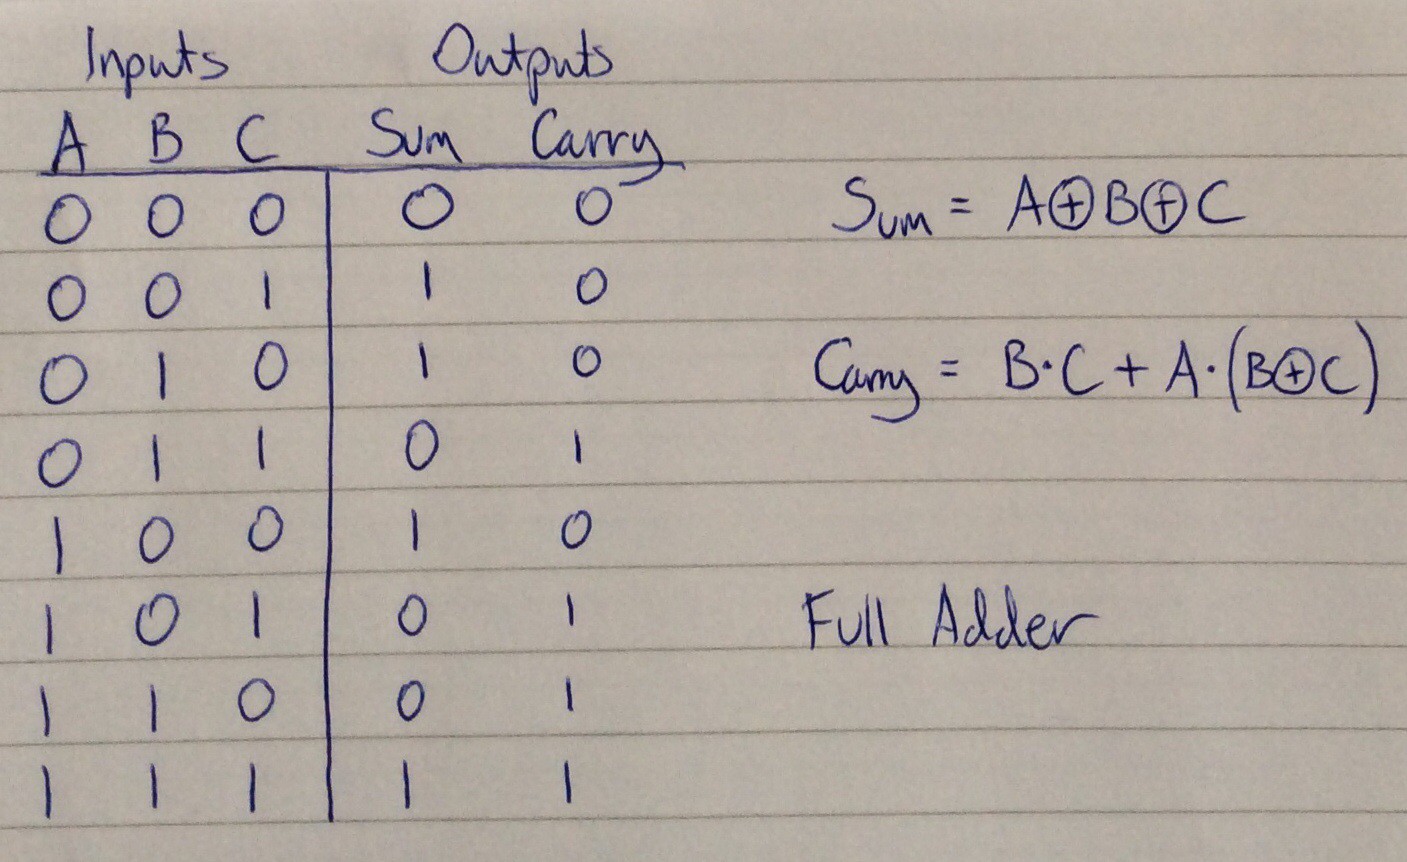 Inputs Outputs
A B C Sum Carry
0 0 0 0 0 Sum = A⊕B⊕C
0 0 1 1 0
0 1 0 1 0 Carry = B·C + A·(B⊕C)
0 1 1 0 1
1 0 0 1 0
1 0 1 0 1 Full Adder
1 1 0 0 1
1 1 1 1 1